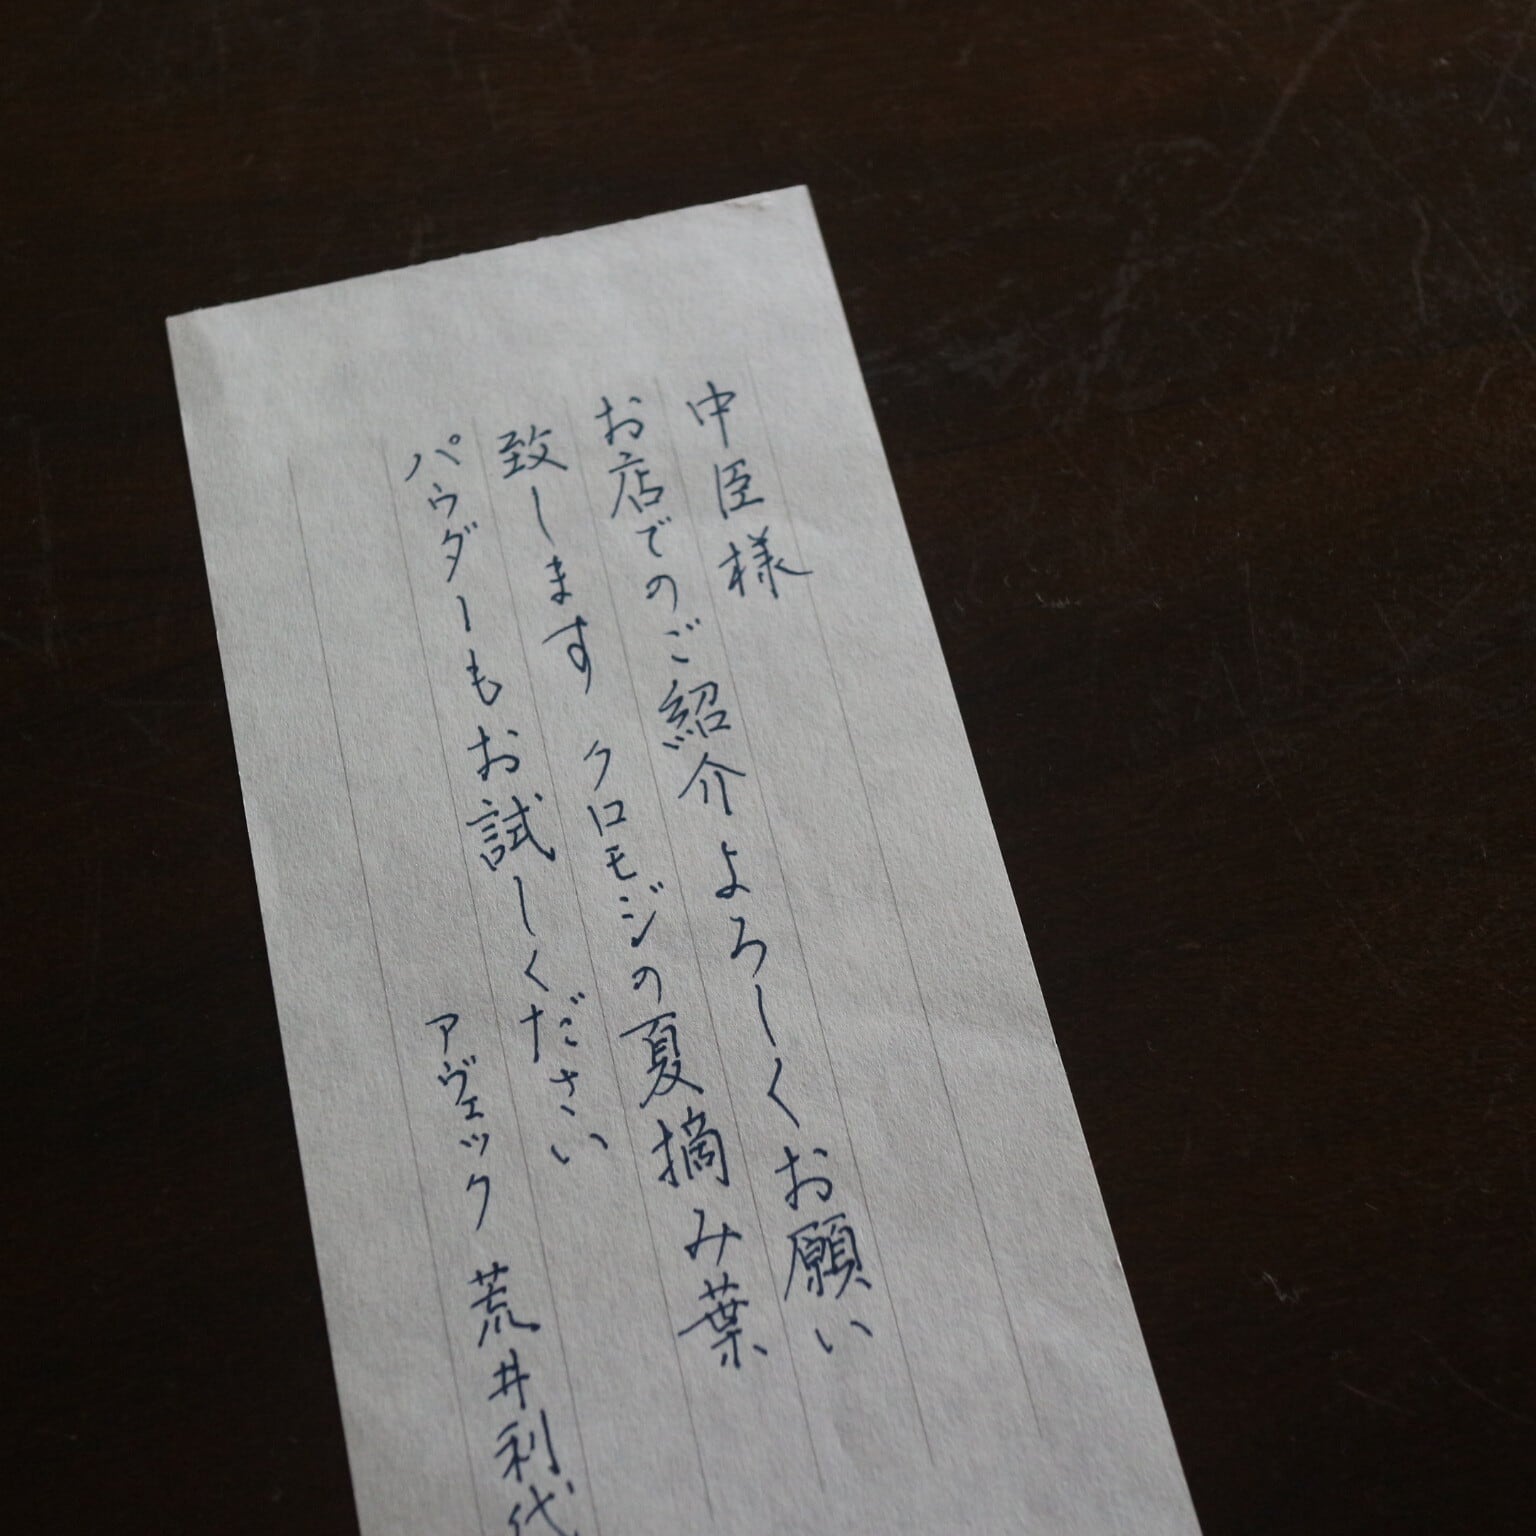 中臣様
お店でのご紹介よろしくお願い
致します クロモジの夏摘み葉
パウダーもお試しください
アヴェック 荒井利代